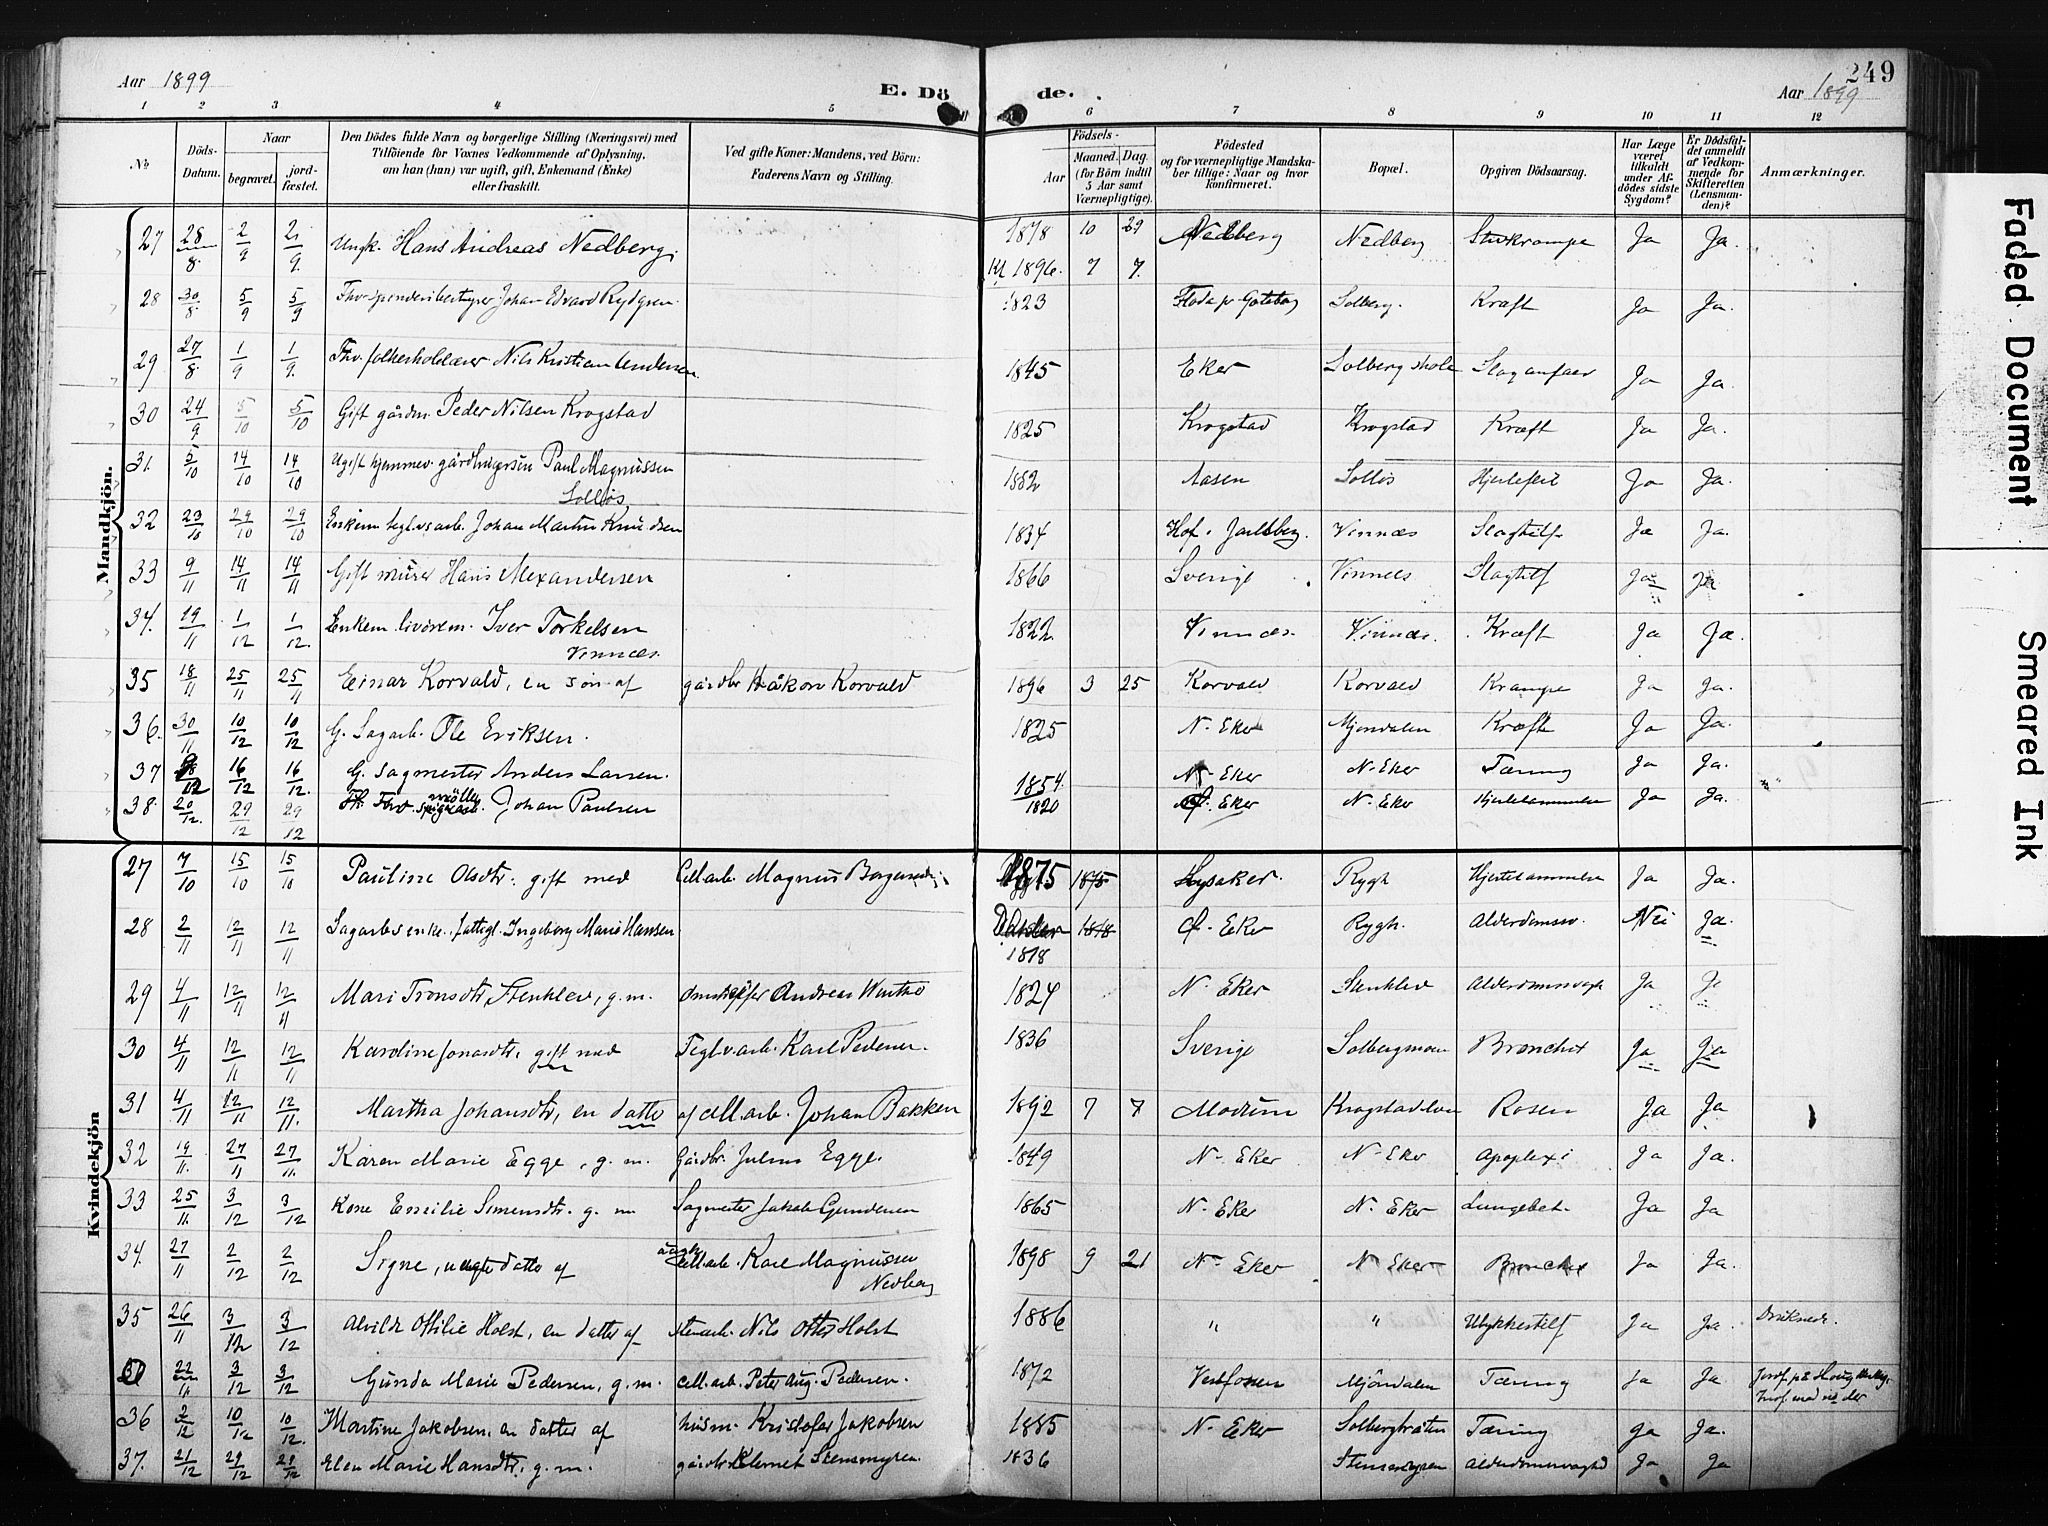 Aar 1899 E. Döde. Aar 1899 249
1 2 3 4 5 6 7 8 9 10 11 12
No. Döds-Datum. Naar begravet. jordfæstet. Den Dödes fulde Navn og borgerlige Stilling (Næringsvei) med Tilföiende for Voxnes Vedkommende af Oplysning, om han (hun) var ugift, gift, Enkemand (Enke) eller fraskilt. Ved gifte Koner: Mandens, ved Börn: Faderens Navn og Stilling. Födsels- Aar Maaned. Dag. (for Börn indtil 5 Aar samt Værnepligtige). Födested og for værnepligtige Mandskaber tillige: Naar og hvor konfirmeret. Bopæl. Opgiven Dödsaarsag. Har Læge været tilkaldt under Afdödes sidste Sygdom? Er Dödsfaldet anmeldt af Vedkommende for Skifteretten (Lensmanden)? Anmærkninger.
Mandkjön.
27 28/8 2/9 2/9 Ungk. Hans Andreas Nedberg 1878 10 29 Nedberg Nedberg Ja Ja.
1896. 7 7.
28 30/8 5/9 5/9 Johan Edvard Rydgren 1823 Solberg. Kræft Ja Ja.
29 27/8 1/9 1/9 Fhv. folkeskolelærer Nils Kristian Andersen 1845 Eker Solberg skole Slaganfald Ja Ja.
30 24/9 5/10 5/10 Gift gårdm. Peder Nilsen Krogstad 1825 Krogstad Krogstad Kræft Ja Ja.
31. 5/10 14/10 14/10 Ugift hjemmev. Paul Magnussen 1882 Aasen Solløs Hjertefeil Ja Ja.
Solløs
32 23/10 29/10 29/10 Enkem. teglv.arb. Johan Martin Knudsen 1834 Hof. Jarlsberg. Vinnæs Slagtilf. Ja Ja.
33 9/11 14/11 14/11 Gift murer Hans Alexandersen 1866 Sverige Vinnæs Slagtilf Ja Ja
34. 19/11 1/12 1/12. Enkem. Iver Torkelsen 1822 Vinnæs. Vinnæs. Kræft Ja Ja.
Vinnæs.
35 18/11 25/11 25/11 Einar Korvald, en søn af gårdbr. Håkon Korvald 1896 3 25 Korvald Korvald Krampe Ja Ja.
36. 30/11 10/12 10/12 G. Sagarb. Ole Eriksen. 1825 N. Eker Mjøndalen Kræft Ja Ja.
37 /12 16/12 16/12. G. Sagmester Anders Larsen. 1854 N. Eker N. Eker Tæring Ja Ja.
38. 20/12. 29/12 29/12 Fhv. Johan Paulsen 1820 Eker N. Eker Hjertelammelse Ja Ja.
Kvindekjön
27 7/10 15/10 15/10 Pauline Olsdtr. gift med Cell.arb. Magnus 1875 1875 Lysaker. Rygh Hjertelammelse Ja Ja.
28 2/11 12/11 12/11 Sagarb.s enke, fattigl. Ingeborg Marie Hansen 1818 1818 Ø. Eker Rygh. Alderdomssv. Nei Ja.
29 4/11 12/11 12/11 Mari Tronsdtr. Stenklev, g.m. Andreas 1824 N. Eker Stenklev Alderdomssvagh Ja Ja
30 4/11 12/11 12/11 Karoline Jonasdtr, gift med Teglv.arb. Karl Pedersen. 1836 Sverige Solbergmoen Bronchit Ja Ja
31 4/11 12/11 12/11. Martha Johansdtr, en datter af cell.arb. Johan Bakken 1892 7 7 Modum Rosen Ja Ja
32 19/11. 27/11 27/11. Karen Marie Egge, g.m. Gårdbr. Julius Egge. 1849 N. Eker N. Eker Apoplexi Ja Ja.
33 25/11. 3/12 3/12 Emilie Simensdtr. g.m Sagmester Jakob Gundersen 1865 N. Eker N. Eker Lungebet. Ja Ja
34. 27/11 2/12 2/12 Signe, datter af ungk. cell.arb. Karl Magnussen 1898 9 21 N. Eker N. Eker Bronchit Ja Ja.
Nedberg
35 26/11 3/12 3/12 Alvilde Ottilie Holst, en datter af stenarb. Nils Otter Holst 1886 " " Ulykkestilf Ja Ja. Druknede.
22/11. 3/12 3/12 Gunda Marie Pedersen, g.m. cell.arb. Peter Aug. Pedersen. 1872 Vestfossen Mjøndalen Tæring Ja Ja
36 2/12 10/12 10/12. Martine Jakobsen, en datter af husm. Kristofer Jakobsen 1885 N. Eker Solbergbråten Tæring Ja Ja.
37. 21/12 29/12 29/12 Elen Marie Hansdtr, g.m. gårdbr. Klemet Stensmyren. 1836 Stensmyren Alderdomssvaghd Ja Ja
Faded Document
Smeared Ink